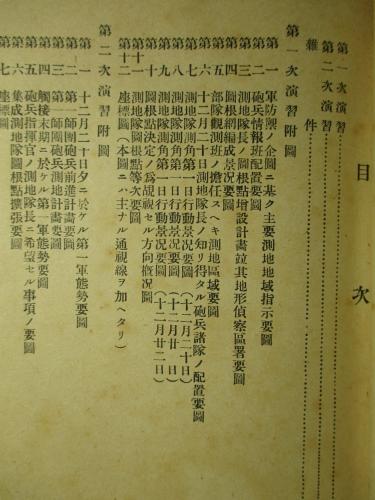 目次
第一次演習
第二次演習
雜件
第一次演習附圖
第一 軍防禦ノ企圖ニ基ク主要測地地域指示要圖
第二 砲兵情報班配置要圖
第三 測地隊長ノ圖根點増設計畫竝其地形偵察區署要圖
第四 圖根網編成景況要圖
第五 部隊觀測班ノ擔任スヘキ測地區域要圖
第六 十二月二十日測地隊長ノ知リ得タル砲兵諸隊ノ配置要圖
第七 測地隊測角第一日行動景況要圖(十二月二十日)
第八 測地隊測角第二日行動景況要圖(十二月廿一日)
第九 測地隊測角第三日行動景況要圖(十二月廿二日)
第十 圖根點決定ノ爲視セル方向概況圖
第十一 測地隊圖根點等次要圖
第十二 座標圖(本圖ニハ主ナル通視線ヲ加ヘタリ)
第二次演習附圖
第一 十二月二十日夕ニ於ケル第一軍態勢要圖
第二 第一師團砲兵前進計畫要圖
第三 第一師團砲兵測地計畫要圖
第四 觸接末期ニ於ケル第一軍態勢要圖
第五 砲兵指揮官ノ測地隊長ニ希望セル事項ノ要圖
第六 集成測地隊圖根點擴張要圖
第七 座標圖